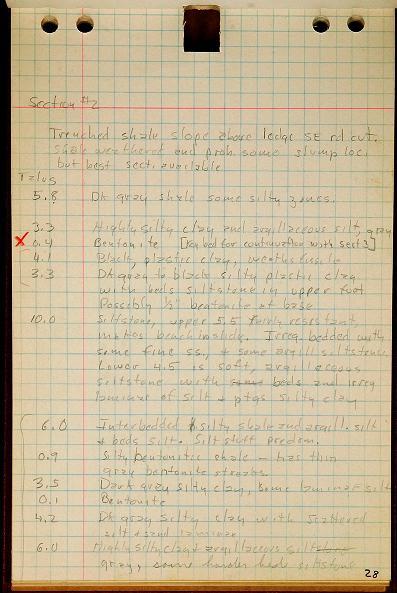 Section #2
Trenched shale slope above ledge SE rd cut.
Shale weathered and prob. some slump loc.
but best sect. available
Talus
5.8 Dk gray shale some silty zones.
3.3 Highly silty clay and argillaceous silt, gray
x 0.4 Bentonite [Key bed for continuation with sect 3]
4.1 Black, plastic clay, weaths fissile
3.3 Dk gray to black silty plastic clay
with beds siltstone in upper foot
Possibly ½" bentonite at base
10.0 Siltstone, upper 5.5 fairly resistant,
makes bench in slide. Irreg. bedded with
some fine ss. & some argill siltstone.
Lower 4.5 is soft, argillaceous
siltstone with beds and irreg
laminae of silt & ptgs silty clay
6.0 Interbedded silty shale and argill. silt
& beds silt. Silt stuff predom.
0.9 Silty bentonitic shale - has thin
gray bentonite streaks
3.5 Dark gray silty clay, some laminae silt
0.1 Bentonite
4.2 Dk gray silty clay with scattered
silt & sand laminae
6.0 Highly silty clay & argillaceous silt
gray, some harder beds siltstone
28